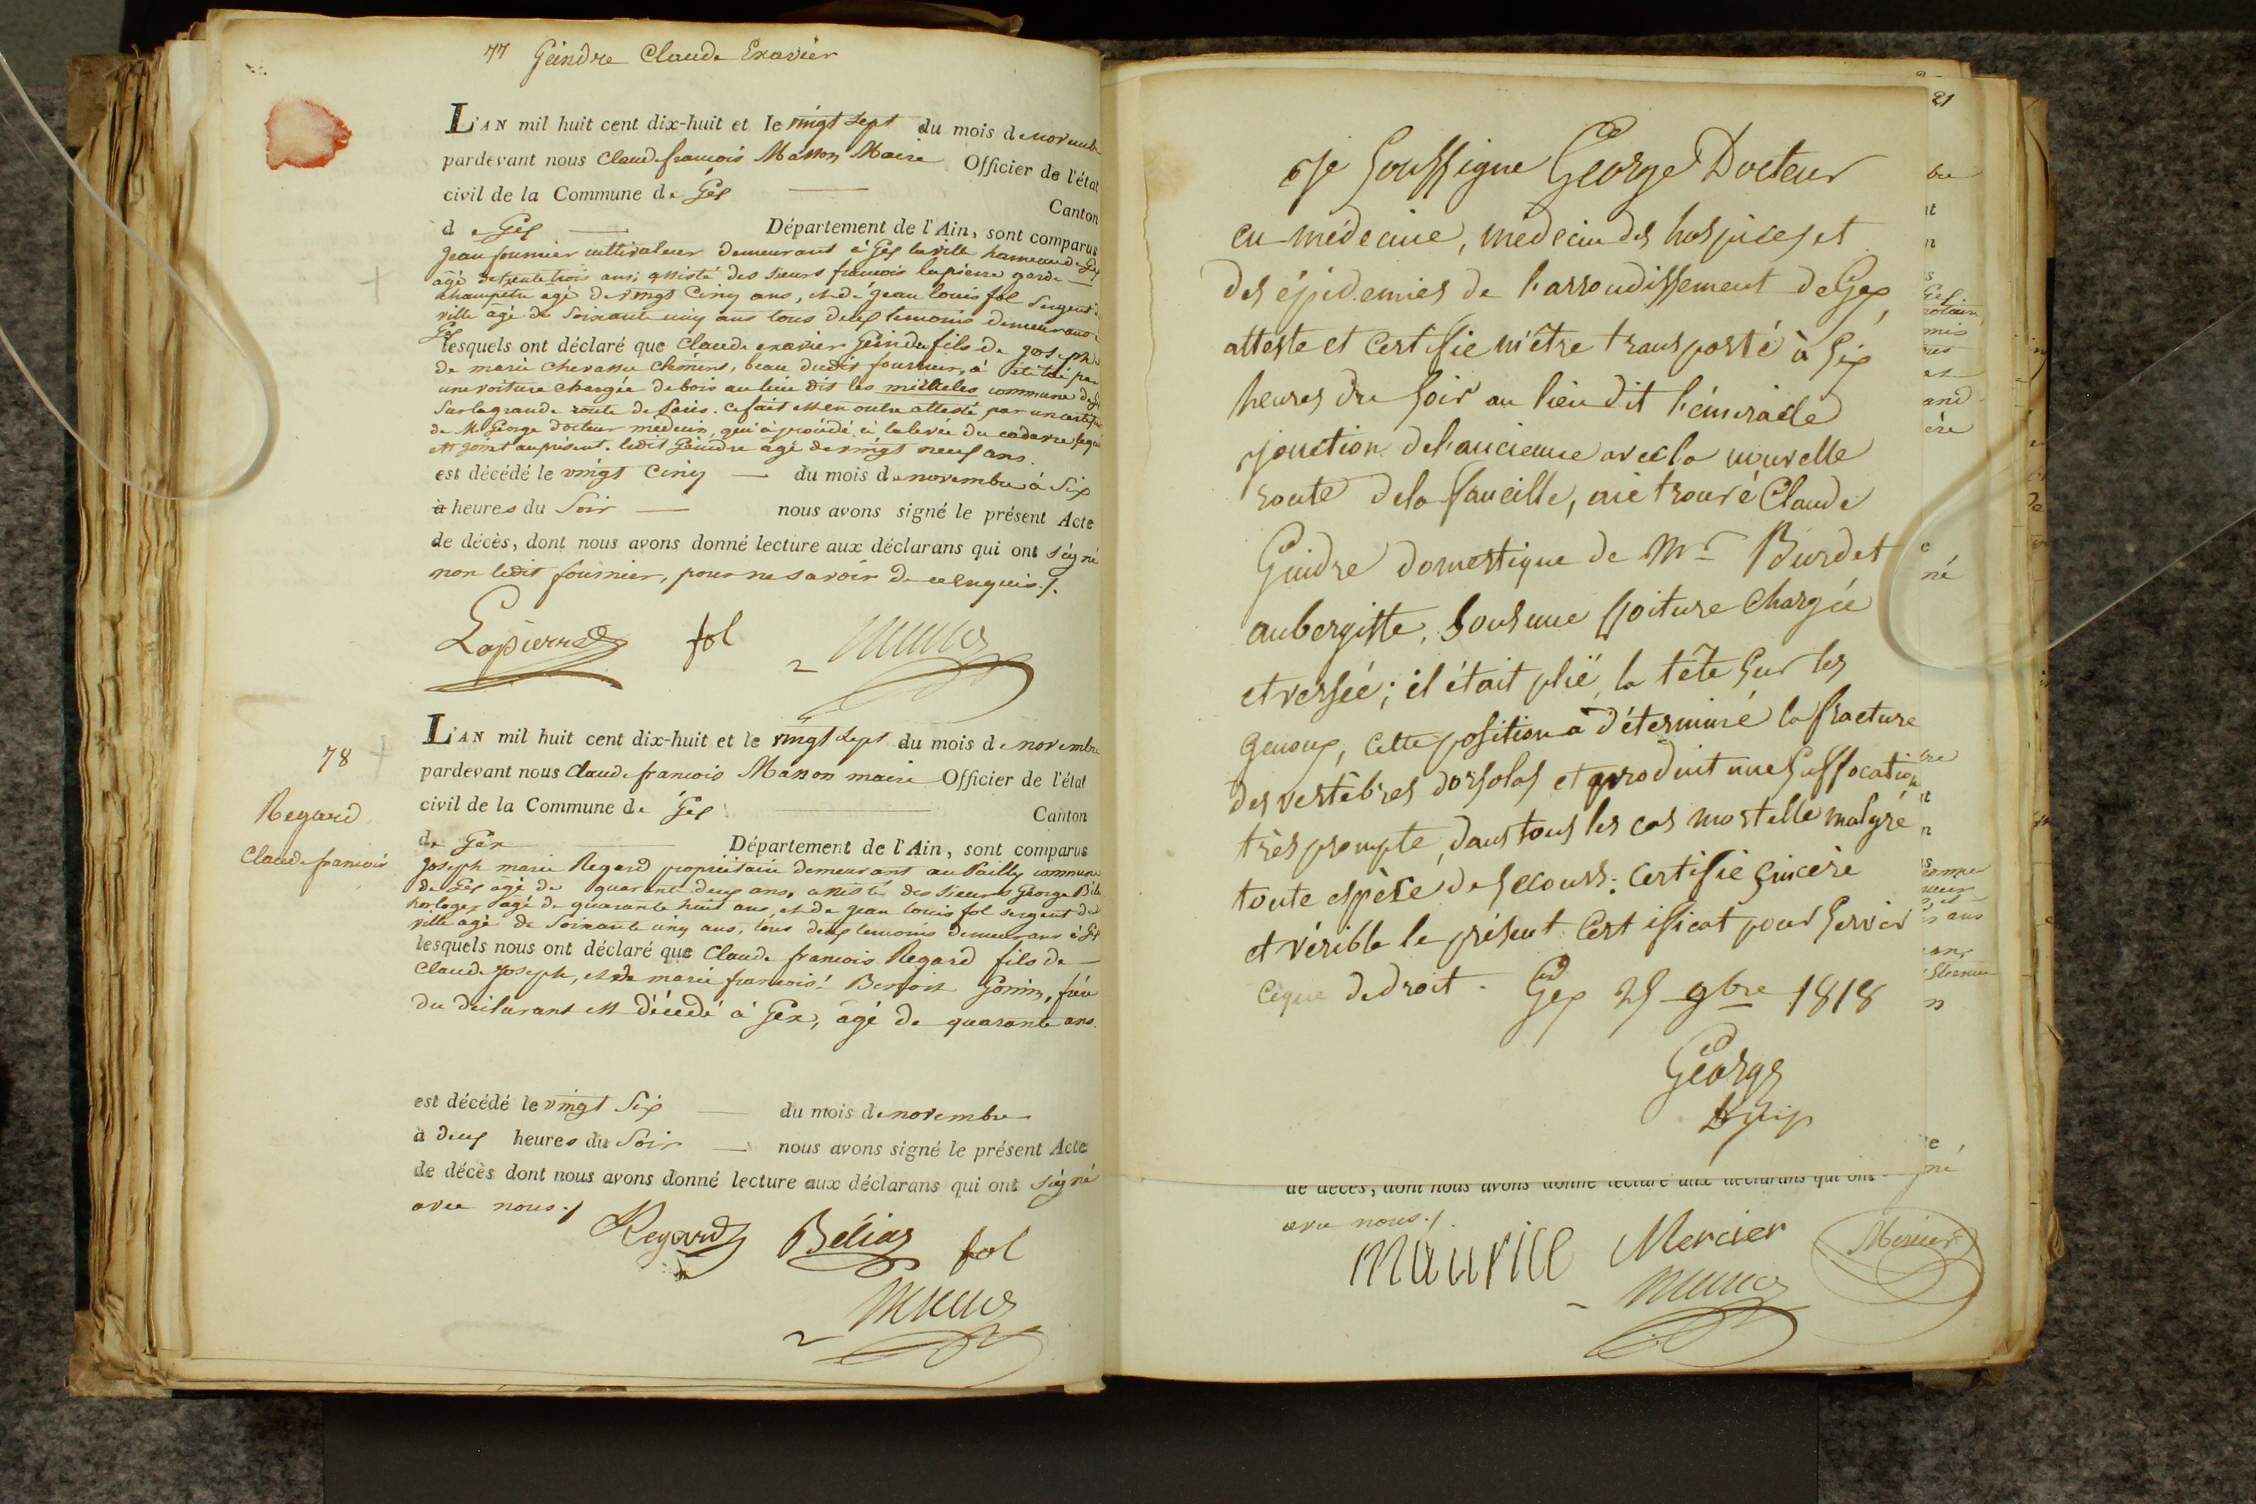 77 Geindre Claude Exavier
L'AN mil huit cent dix-huit et le vingt sept du mois de novemb
pardevant nous Claude françois Masson Maire Officier de l'état
civil de la Commune de Gex Canton
de Gex Département de l'Ain, sont comparus
Jean fournier cultivateur demeurant à Gex la ville hameau de Gex
âgé de trente trois ans, assisté des sieurs françois lapierre garde
champetre agé de vingt Cinq ans, et de jean louis fol Sergent de
ville âgé de Soixante cinq ans tous deux temoins demeurans à
Gex
lesquels ont déclaré que Claude exavier Geindre fils de joseph
de marie Chevassu Clémens, beau dudit fournier, à été tué par
une voiture chargée de bois au lieu dit les commune de Gex
Sur la grande route de Paris. Ce fait est en outre attesté par un certificat
de Mr George docteur medecin, qui à procédé à la levée du cadavre lequel
est joint au présent. ledit Geindre âgé de vingt neuf ans.
est décédé le vingt Cinq du mois de novembre à Six
à heures du Soir nous avons signé le présent Acte
de décès, dont nous avons donné lecture aux déclarans qui ont signé
non ledit fournier, pour ne savoir de ce enquis ./.
Lapierre fol
78
Regard
Claude françois
L'AN mil huit cent dix-huit et le vingt sept du mois de novembre
pardevant nous Claude françois Masson maire Officier de l'état
civil de la Commune de Gex Canton
de Gex Département de l'Ain, sont comparus
Joseph marie Regard propriétaire demeurant au Pailly commune
de Gex âgé de quarante deux ans, assisté des sieurs George Béli
horloger âgé de quarante huit ans, et de jean louis fol sergent de
ville agé de Soixante cinq ans, tous deux temoins demeurans à Gex
lesquels nous ont déclaré que Claude francois Regard fils de
Claude joseph, et de marie françoise Benoit Gonin, frère
du déclarant est décédé à Gex, âgé de quarante ans.
est décédé le vingt Six du mois de novembre
à deux heures du Soir nous avons signé le présent Acte
de décès dont nous avons donné lecture aux déclarans qui ont signé
avec nous ./
Regard Bélias fol
21
Je Soussigné George Docteur
en médecine, médecin des hospices et
des épidemies de l'arrondissement de Gex,
atteste et certifie m'être transporté à Six
heures du soir au lieu dit
jonction de l'ancienne avec la nouvelle
route de la faucille, ai trouvé Claude
Geindre domestique de Mr Burdet
aubergiste, sous une voiture chargée
et versée; il était plié, la tête sur les
genoux, cette position a déterminé la fracture
des vertèbres dorsolas et produit une suffocation
très prompte, dans tous les cas mortelle malgré
toute espèce de secours. Certifie sincère
et vérible le présent Certificat pour servir
ce que de droit. Gex 25 9bre 1818
George
de décès, dont nous avons donné lecture aux déclarans qui ont
avec nous ./.
Maurice Mercier Mercier